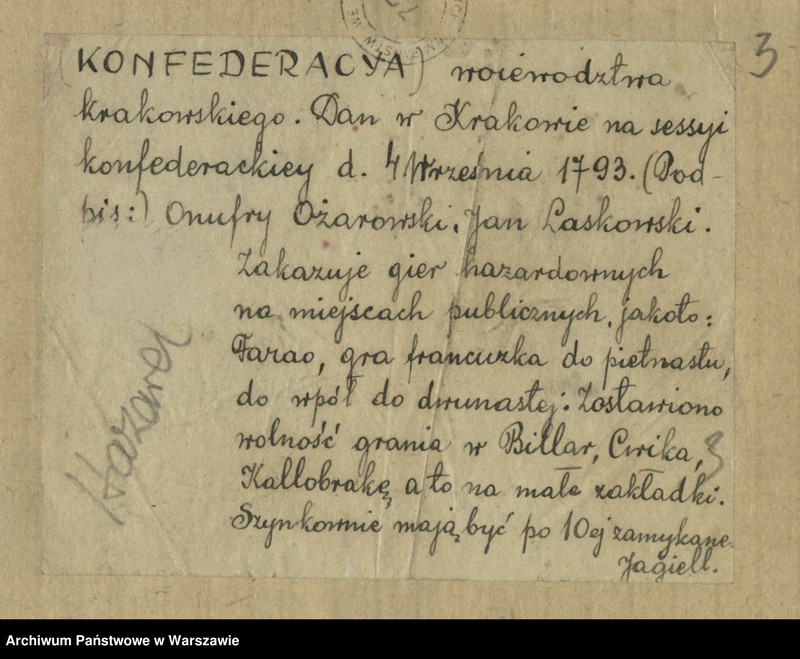 3
(KONFEDERACYA) woiewodztwa
krakowskiego. Dan w Krakowie na sessyi
konfederackiey d. 4 Września 1793. (Pod-
pis:) Onufry Ożarowski, Jan Laskowski.
Zakazuje gier hazardownych
na miejscach publicznych, jakoto:
Farao, gra francuzka do piętnastu,
do wpół do dwunastej: Zostawiono
wolność grania w Billar, Cwika, 3
Kallobrakę, a to na małe zakładki.
Szynkownie mają być po 10ej zamykane
Jagiell.
Hazard
Archiwum Państwowe w Warszawie